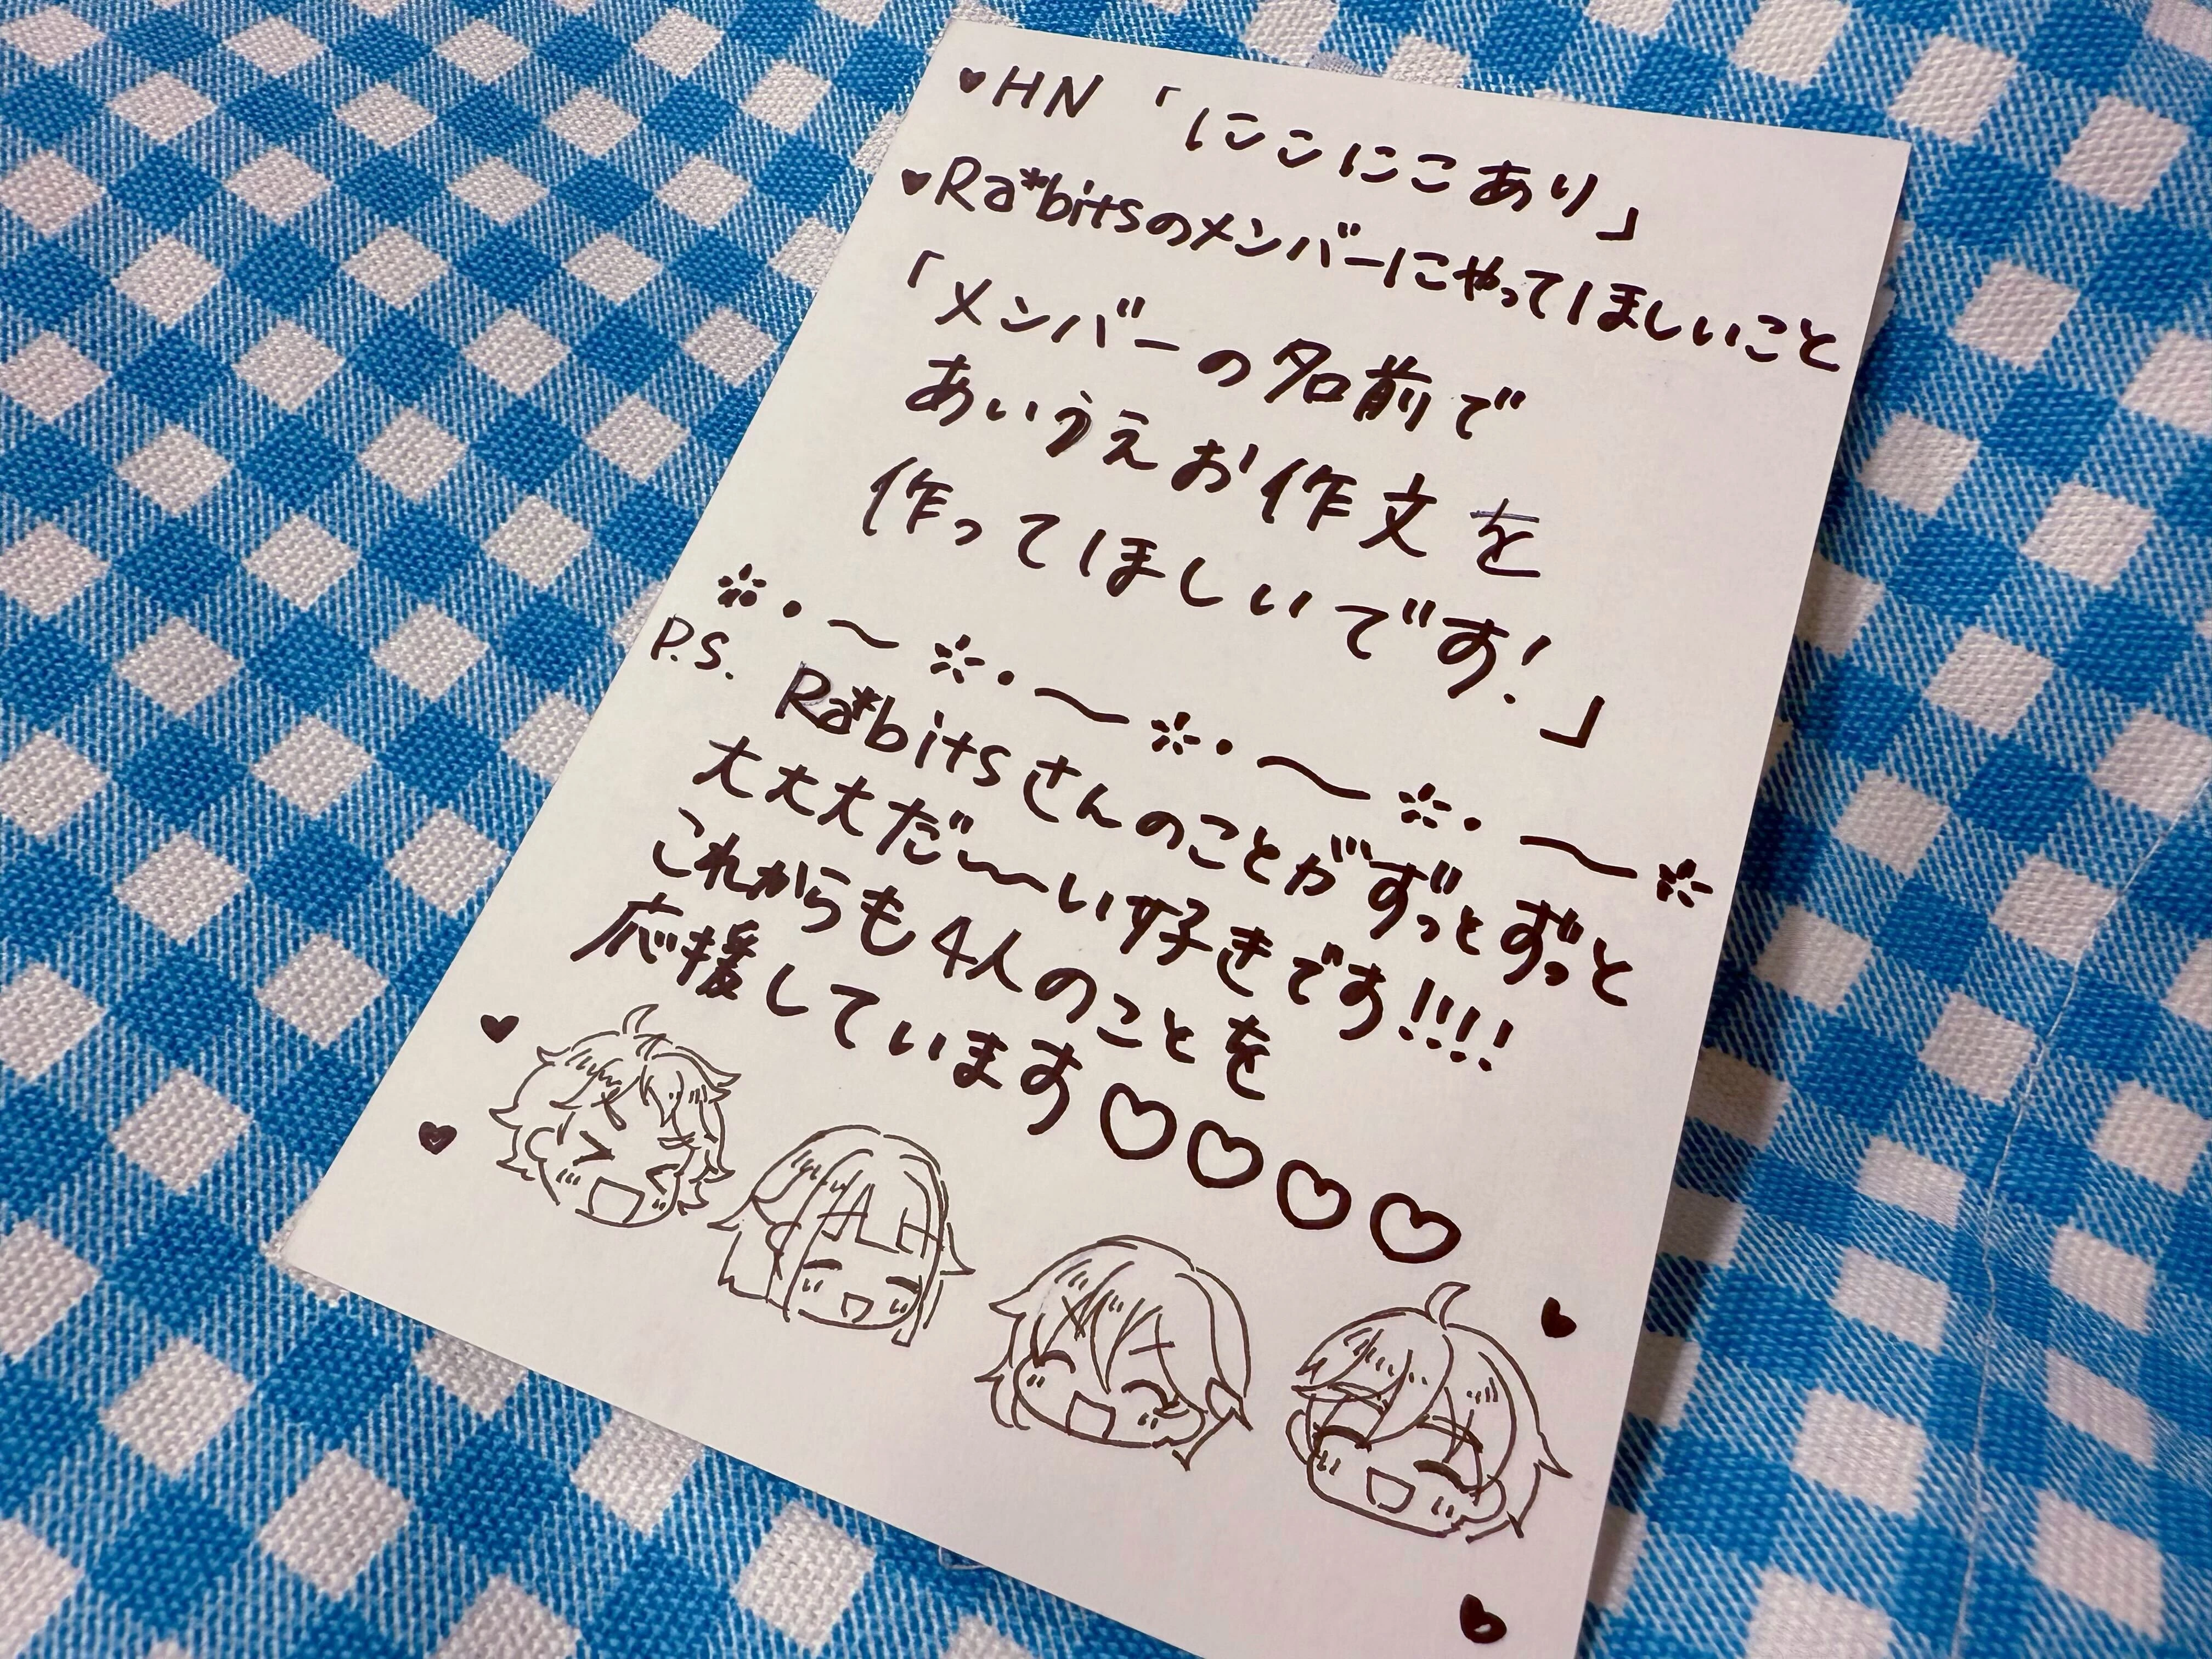 ♥HN 「にこにこあり」
♥Ra*bitsのメンバーにやってほしいこと
「メンバーの名前で
あいうえお作文を
作ってほしいです!」
P.S. Ra*bitsさんのことがずっとずっと
大大大だ〜〜い好きです!!!!
これからも4人のことを
応援しています♡♡♡♡